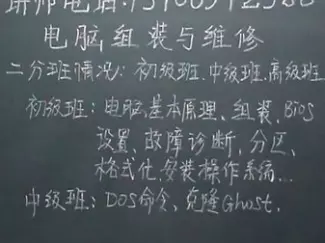 电脑组装与维修
二分班情况：初级班.中级班.高级班
初级班：电脑基本原理、组装、Bios
设置、故障诊断、分区、
格式化、安装操作系统...
中级班：DOS命令、克隆Ghost.